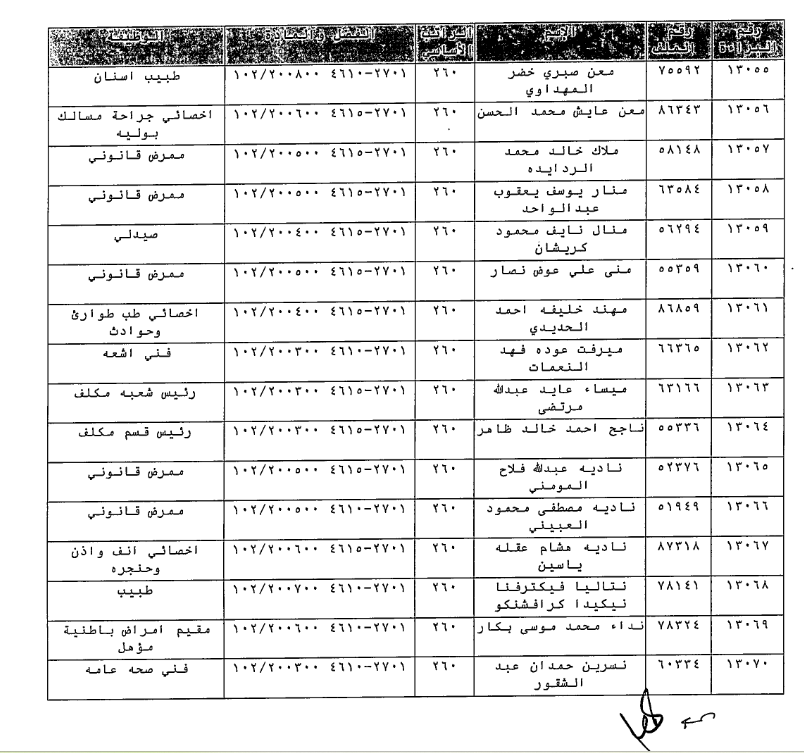 رقم البراءة رقم الملف الاسم الراتب الأساسي الفصل والمادة الوظيفة
١٣٠٥٥ ٧٥٥٩٢ معن صبري خضر المهداوي ٢٦٠ ٢٧٠١-٤٦١٠ ١٠٢/٢٠٠٨٠٠ طبيب اسنان
١٣٠٥٦ ٨٦٣٤٣ معن عايش محمد الحسن ٢٦٠ ٢٧٠١-٤٦١٥ ١٠٢/٢٠٠٦٠٠ اخصائي جراحة مسالك بوليه
١٣٠٥٧ ٥٨١٤٨ ملاك خالد محمد الردايده ٢٦٠ ٢٧٠١-٤٦١٥ ١٠٢/٢٠٠٥٠٠ ممرض قانوني
١٣٠٥٨ ٦٣٥٨٤ منار يوسف يعقوب عبدالواحد ٢٦٠ ٢٧٠١-٤٦١٥ ١٠٢/٢٠٠٥٠٠ ممرض قانوني
١٣٠٥٩ ٥٦٢٩٤ منال نايف محمود كريشان ٢٦٠ ٢٧٠١-٤٦١٥ ١٠٢/٢٠٠٤٠٠ صيدلي
١٣٠٦٠ ٥٥٣٥٩ منى علي عوض نصار ٢٦٠ ٢٧٠١-٤٦١٠ ١٠٢/٢٠٠٥٠٠ ممرض قانوني
١٣٠٦١ ٨٦٨٥٩ مهند خليفه احمد الحديدي ٢٦٠ ٢٧٠١-٤٦١٥ ١٠٢/٢٠٠٤٠٠ اخصائي طب طوارئ وحوادث
١٣٠٦٢ ٦٦٣٦٥ ميرفت عوده فهد النعمات ٢٦٠ ٢٧٠١-٤٦١٠ ١٠٢/٢٠٠٣٠٠ فني اشعه
١٣٠٦٣ ٦٣١٦٦ ميساء عايد عبدالله مرتضى ٢٦٠ ٢٧٠١-٤٦١٥ ١٠٢/٢٠٠٣٠٠ رئيس شعبه مكلف
١٣٠٦٤ ٥٥٣٣٦ ناجح احمد خالد ظاهر ٢٦٠ ٢٧٠١-٤٦١٥ ١٠٢/٢٠٠٣٠٠ رئيس قسم مكلف
١٣٠٦٥ ٥٢٣٧٦ ناديه عبدالله فلاح المومني ٢٦٠ ٢٧٠١-٤٦١٥ ١٠٢/٢٠٠٥٠٠ ممرض قانوني
١٣٠٦٦ ٥١٩٤٩ ناديه مصطفى محمود العبيني ٢٦٠ ٢٧٠١-٤٦١٠ ١٠٢/٢٠٠٥٠٠ ممرض قانوني
١٣٠٦٧ ٨٧٣١٨ ناديه هشام عقله ياسين ٢٦٠ ٢٧٠١-٤٦١٥ ١٠٢/٢٠٠٦٠٠ اخصائي انف واذن وحنجره
١٣٠٦٨ ٧٨١٤١ نتاليا فيكترفنا نيكيدا كرافشنكو ٢٦٠ ٢٧٠١-٤٦١٠ ١٠٢/٢٠٠٧٠٠ طبيب
١٣٠٦٩ ٧٨٣٢٤ نداء محمد موسى بكار ٢٦٠ ٢٧٠١-٤٦١٠ ١٠٢/٢٠٠٦٠٠ مقيم امراض باطنية مؤهل
١٣٠٧٠ ٦٠٣٣٤ نسرين حمدان عبد الشقور ٢٦٠ ٢٧٠١-٤٦١٠ ١٠٢/٢٠٠٣٠٠ فني صحه عامه